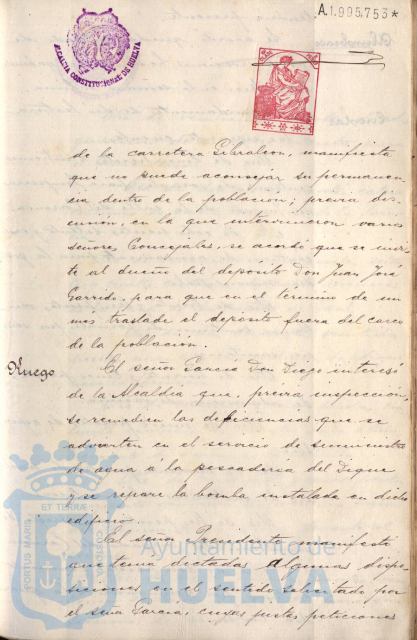 A.1.995.753*
ALCALDIA CONSTITUCIONAL DE HUELVA
de la carretera Gibraleon, manifiesta
que no puede aconsejar su permanen-
cia dentro de la población; previa dis-
cusión, en la que intervinieron varios
señores Concejales, se acordó que se invi-
te al dueño del depósito Don Juan José
Garrido, para que en el término de un
mes traslade el depósito fuera del casco
de la población.
Ruego
El señor Garcia Don Diego interesó
de la Alcaldia que, previa inspección,
se remedien las deficiencias que se
advierten en el servicio de suministro
de agua á la pescaderia del Dique
y se repare la bomba instalada en dicho
edificio.
El señor Presidente manifestó
que tenia dictadas algunas dispo-
siciones en el sentido solicitado por
el señor Garcia, cuyas justas peticiones
ET TERRÆ
PORTUS MARIS
CUSTODIA
Ayuntamiento de
HUELVA